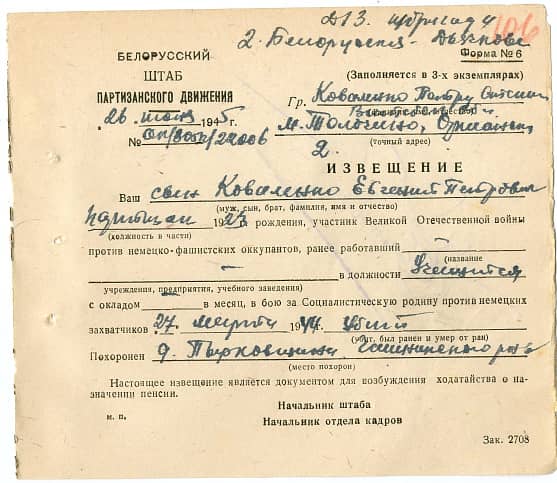 Д13. бригада 106
2. Белорусская -
БЕЛОРУССКИЙ
ШТАБ
ПАРТИЗАНСКОГО ДВИЖЕНИЯ
26 июня 1945 г.
№ 22006
Форма № 6
(Заполняется в 3-х экземплярах)
Гр. Коваленко Петру
м. Толочино,
(точный адрес)
2.
ИЗВЕЩЕНИЕ
Ваш сын Коваленко Евгений Петрович
(муж, сын, брат, фамилия, имя и отчество)
партизан 1923 г. рождения, участник Великой Отечественной войны
(должность в части)
против немецко-фашистских оккупантов, ранее работавший —
(название
— в должности учащийся
учреждения, предприятия, учебного заведения)
с окладом — в месяц, в бою за Социалистическую родину против немецких
захватчиков 27 марта 1944 г. убит
(убит, был ранен и умер от ран)
Похоронен д.
(место похорон)
Настоящее извещение является документом для возбуждения ходатайства о на-
значении пенсии.
Начальник штаба
м. п. Начальник отдела кадров
Зак. 2708